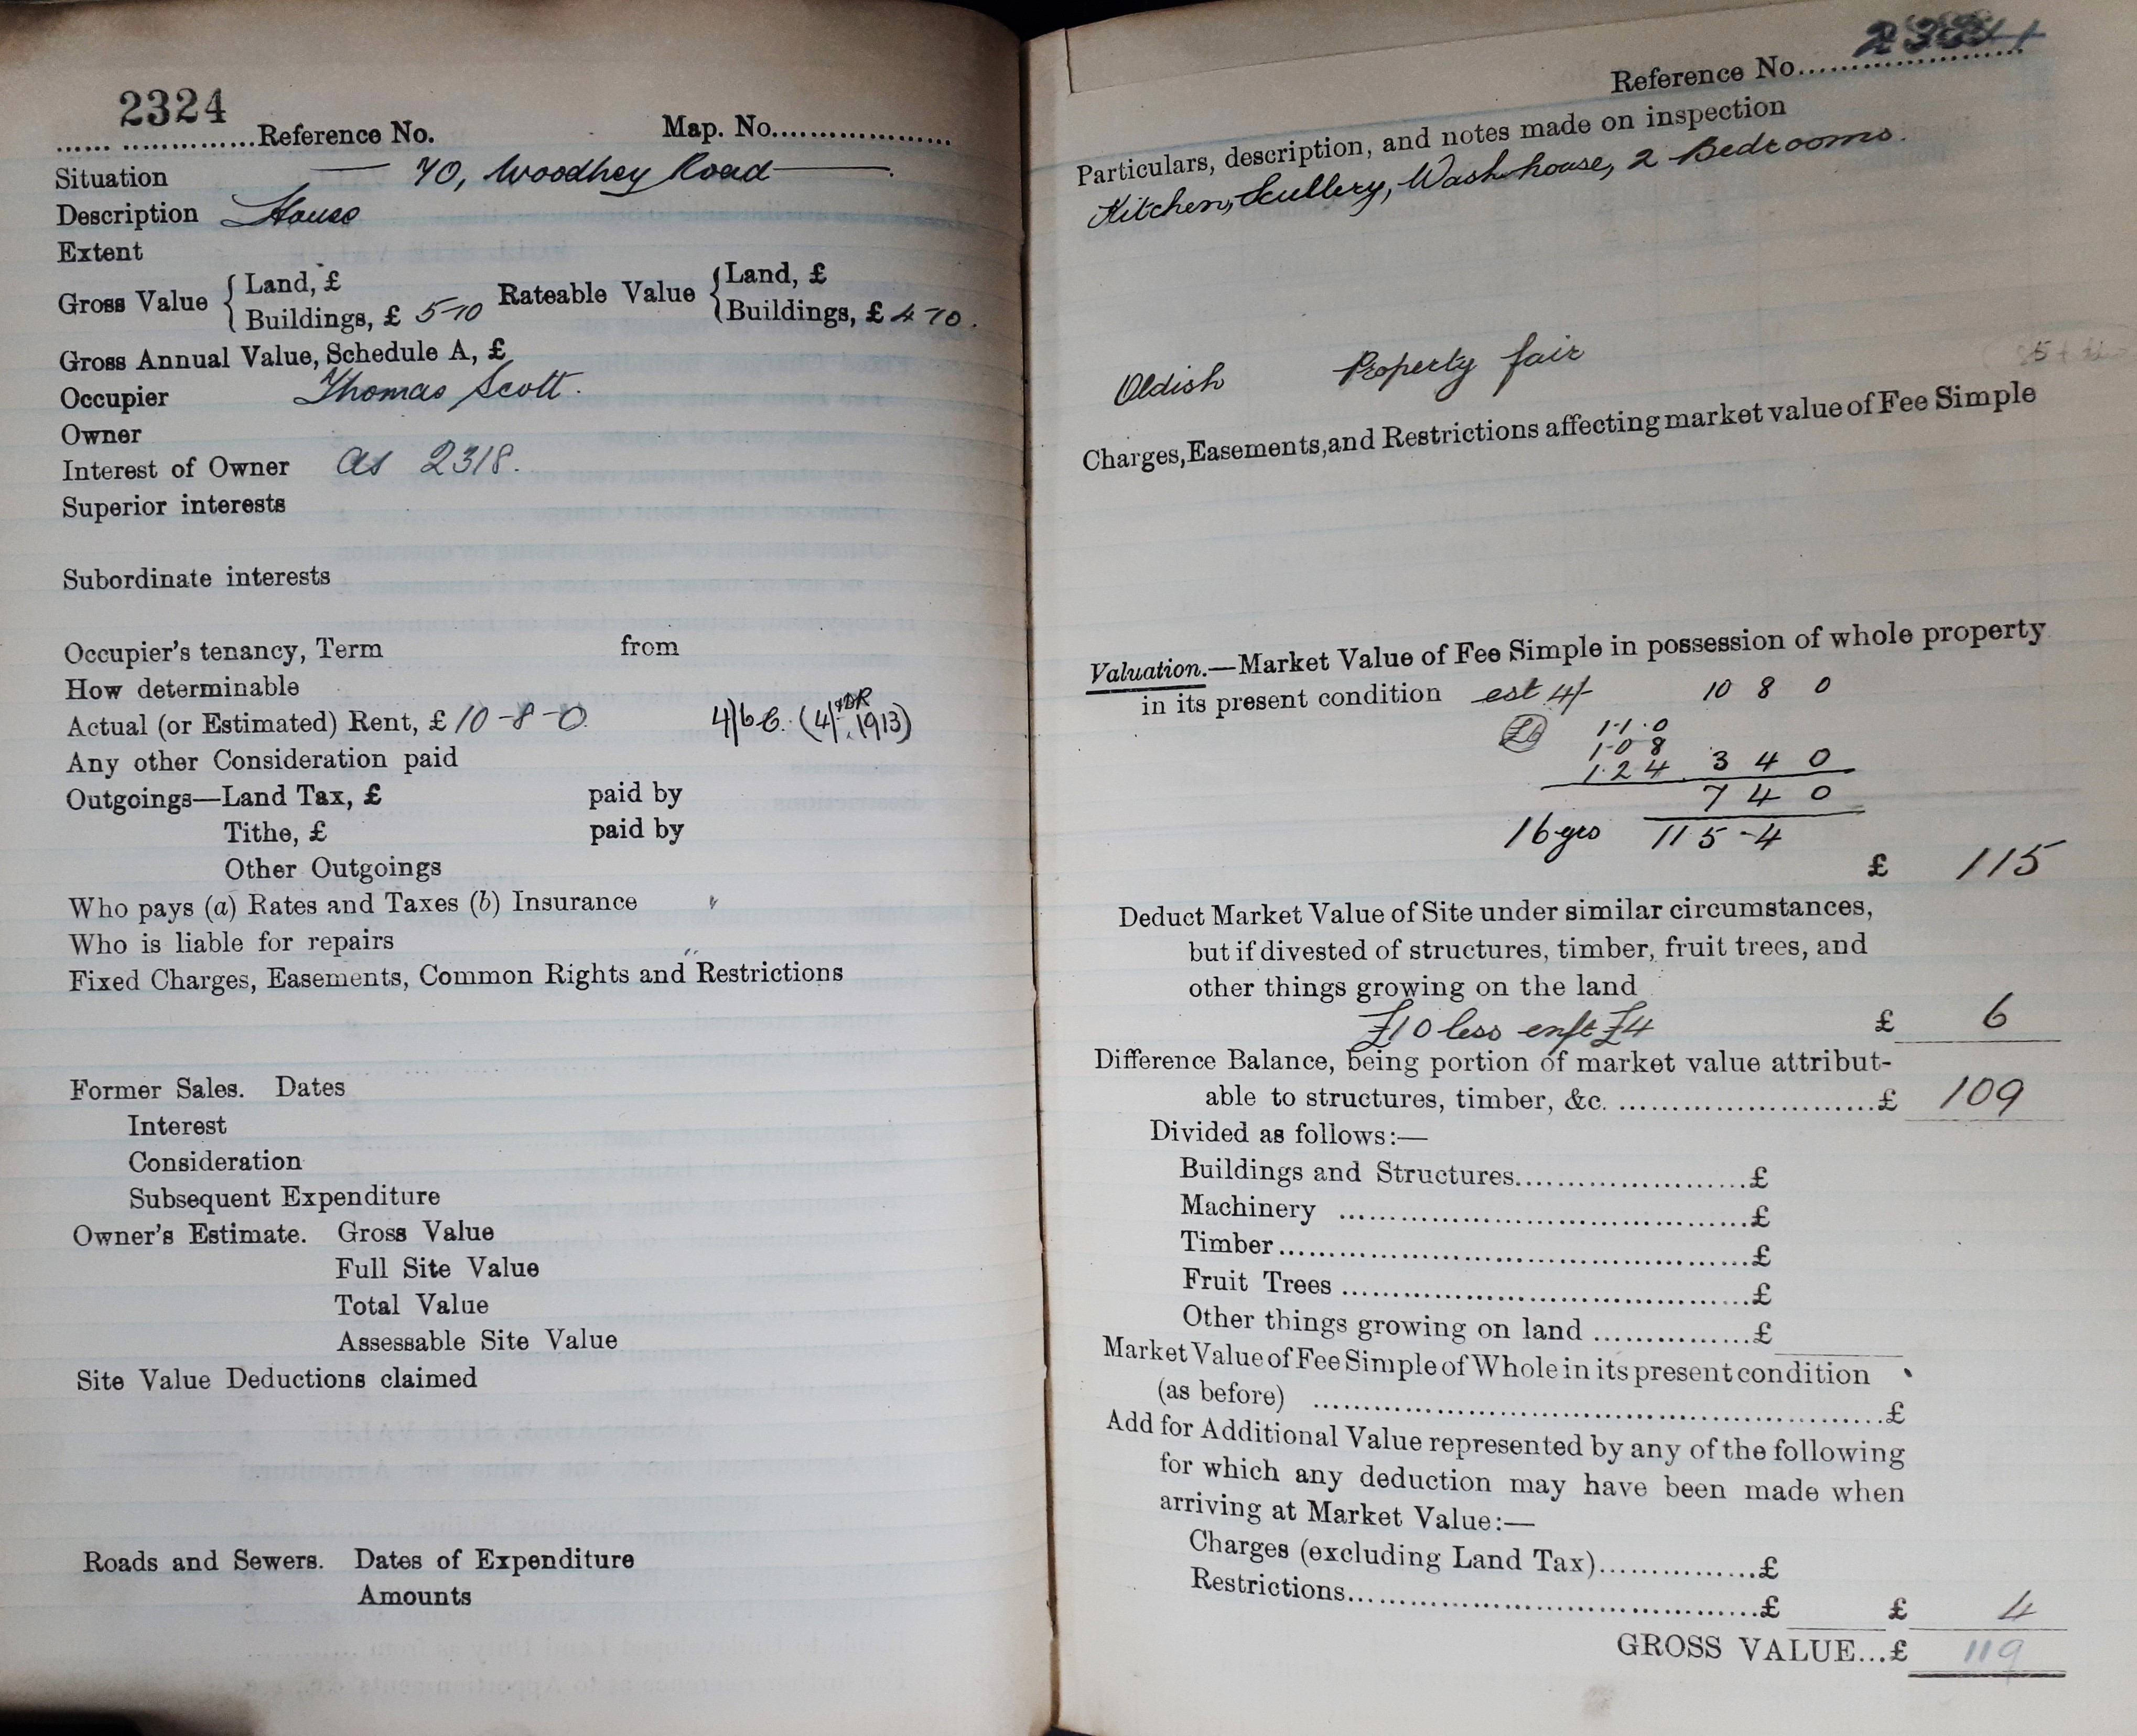 2324
...... ..............Reference No. Map. No....................
Situation — 70, Woodhey Road —.
Description House
Extent
Gross Value { Land, £
Buildings, £ 5-10 Rateable Value { Land, £
Buildings, £ 4-10.
Gross Annual Value, Schedule A, £
Occupier Thomas Scott.
Owner
Interest of Owner as 2318.
Superior interests
Subordinate interests
Occupier's tenancy, Term from
How determinable
Actual (or Estimated) Rent, £ 10-8-0 (4/-, 1913)
Any other Consideration paid
Outgoings—Land Tax, £ paid by
Tithe, £ paid by
Other Outgoings
Who pays (a) Rates and Taxes (b) Insurance "
Who is liable for repairs "
Fixed Charges, Easements, Common Rights and Restrictions
Former Sales. Dates
Interest
Consideration
Subsequent Expenditure
Owner's Estimate. Gross Value
Full Site Value
Total Value
Assessable Site Value
Site Value Deductions claimed
Roads and Sewers. Dates of Expenditure
Amounts
Reference No.......................
Particulars, description, and notes made on inspection
Kitchen, Scullery, Wash-house, 2 Bedrooms.
Oldish Property fair
Charges, Easements, and Restrictions affecting market value of Fee Simple
Valuation.—Market Value of Fee Simple in possession of whole property
in its present condition est 4/- 10 8 0
1-1-0
1-0 8
1-2 4 3 4 0
7 4 0
16 yrs 115-4
£ 115
Deduct Market Value of Site under similar circumstances,
but if divested of structures, timber, fruit trees, and
other things growing on the land
£10 less enft £4 £ 6
Difference Balance, being portion of market value attribut-
able to structures, timber, &c. ...........................£ 109
Divided as follows:—
Buildings and Structures........................£
Machinery ..........................................£
Timber................................................£
Fruit Trees ..........................................£
Other things growing on land ................£
Market Value of Fee Simple of Whole in its present condition
(as before) ..........................................................£
Add for Additional Value represented by any of the following
for which any deduction may have been made when
arriving at Market Value:—
Charges (excluding Land Tax)................£
Restrictions..........................................£ £ 4
GROSS VALUE...£ 119